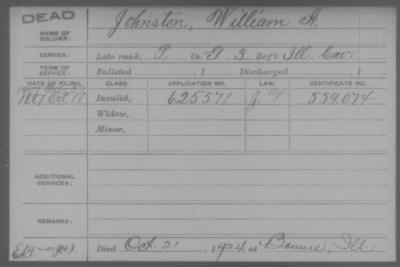 DEAD
NAME OF SOLDIER: Johnston, William A.
SERVICE: Late rank, P. Co. G 3 Reg't Ill. Cav.
TERM OF SERVICE: Enlisted , 1 Discharged , 1
DATE OF FILING. CLASS. APPLICATION NO. LAW. CERTIFICATE NO.
1887 Oct 17 Invalid, 625571 J. 559074
Widow,
Minor,
ADDITIONAL SERVICES:
REMARKS:
Died Oct. 21, 1924, at Bonnie, Ill